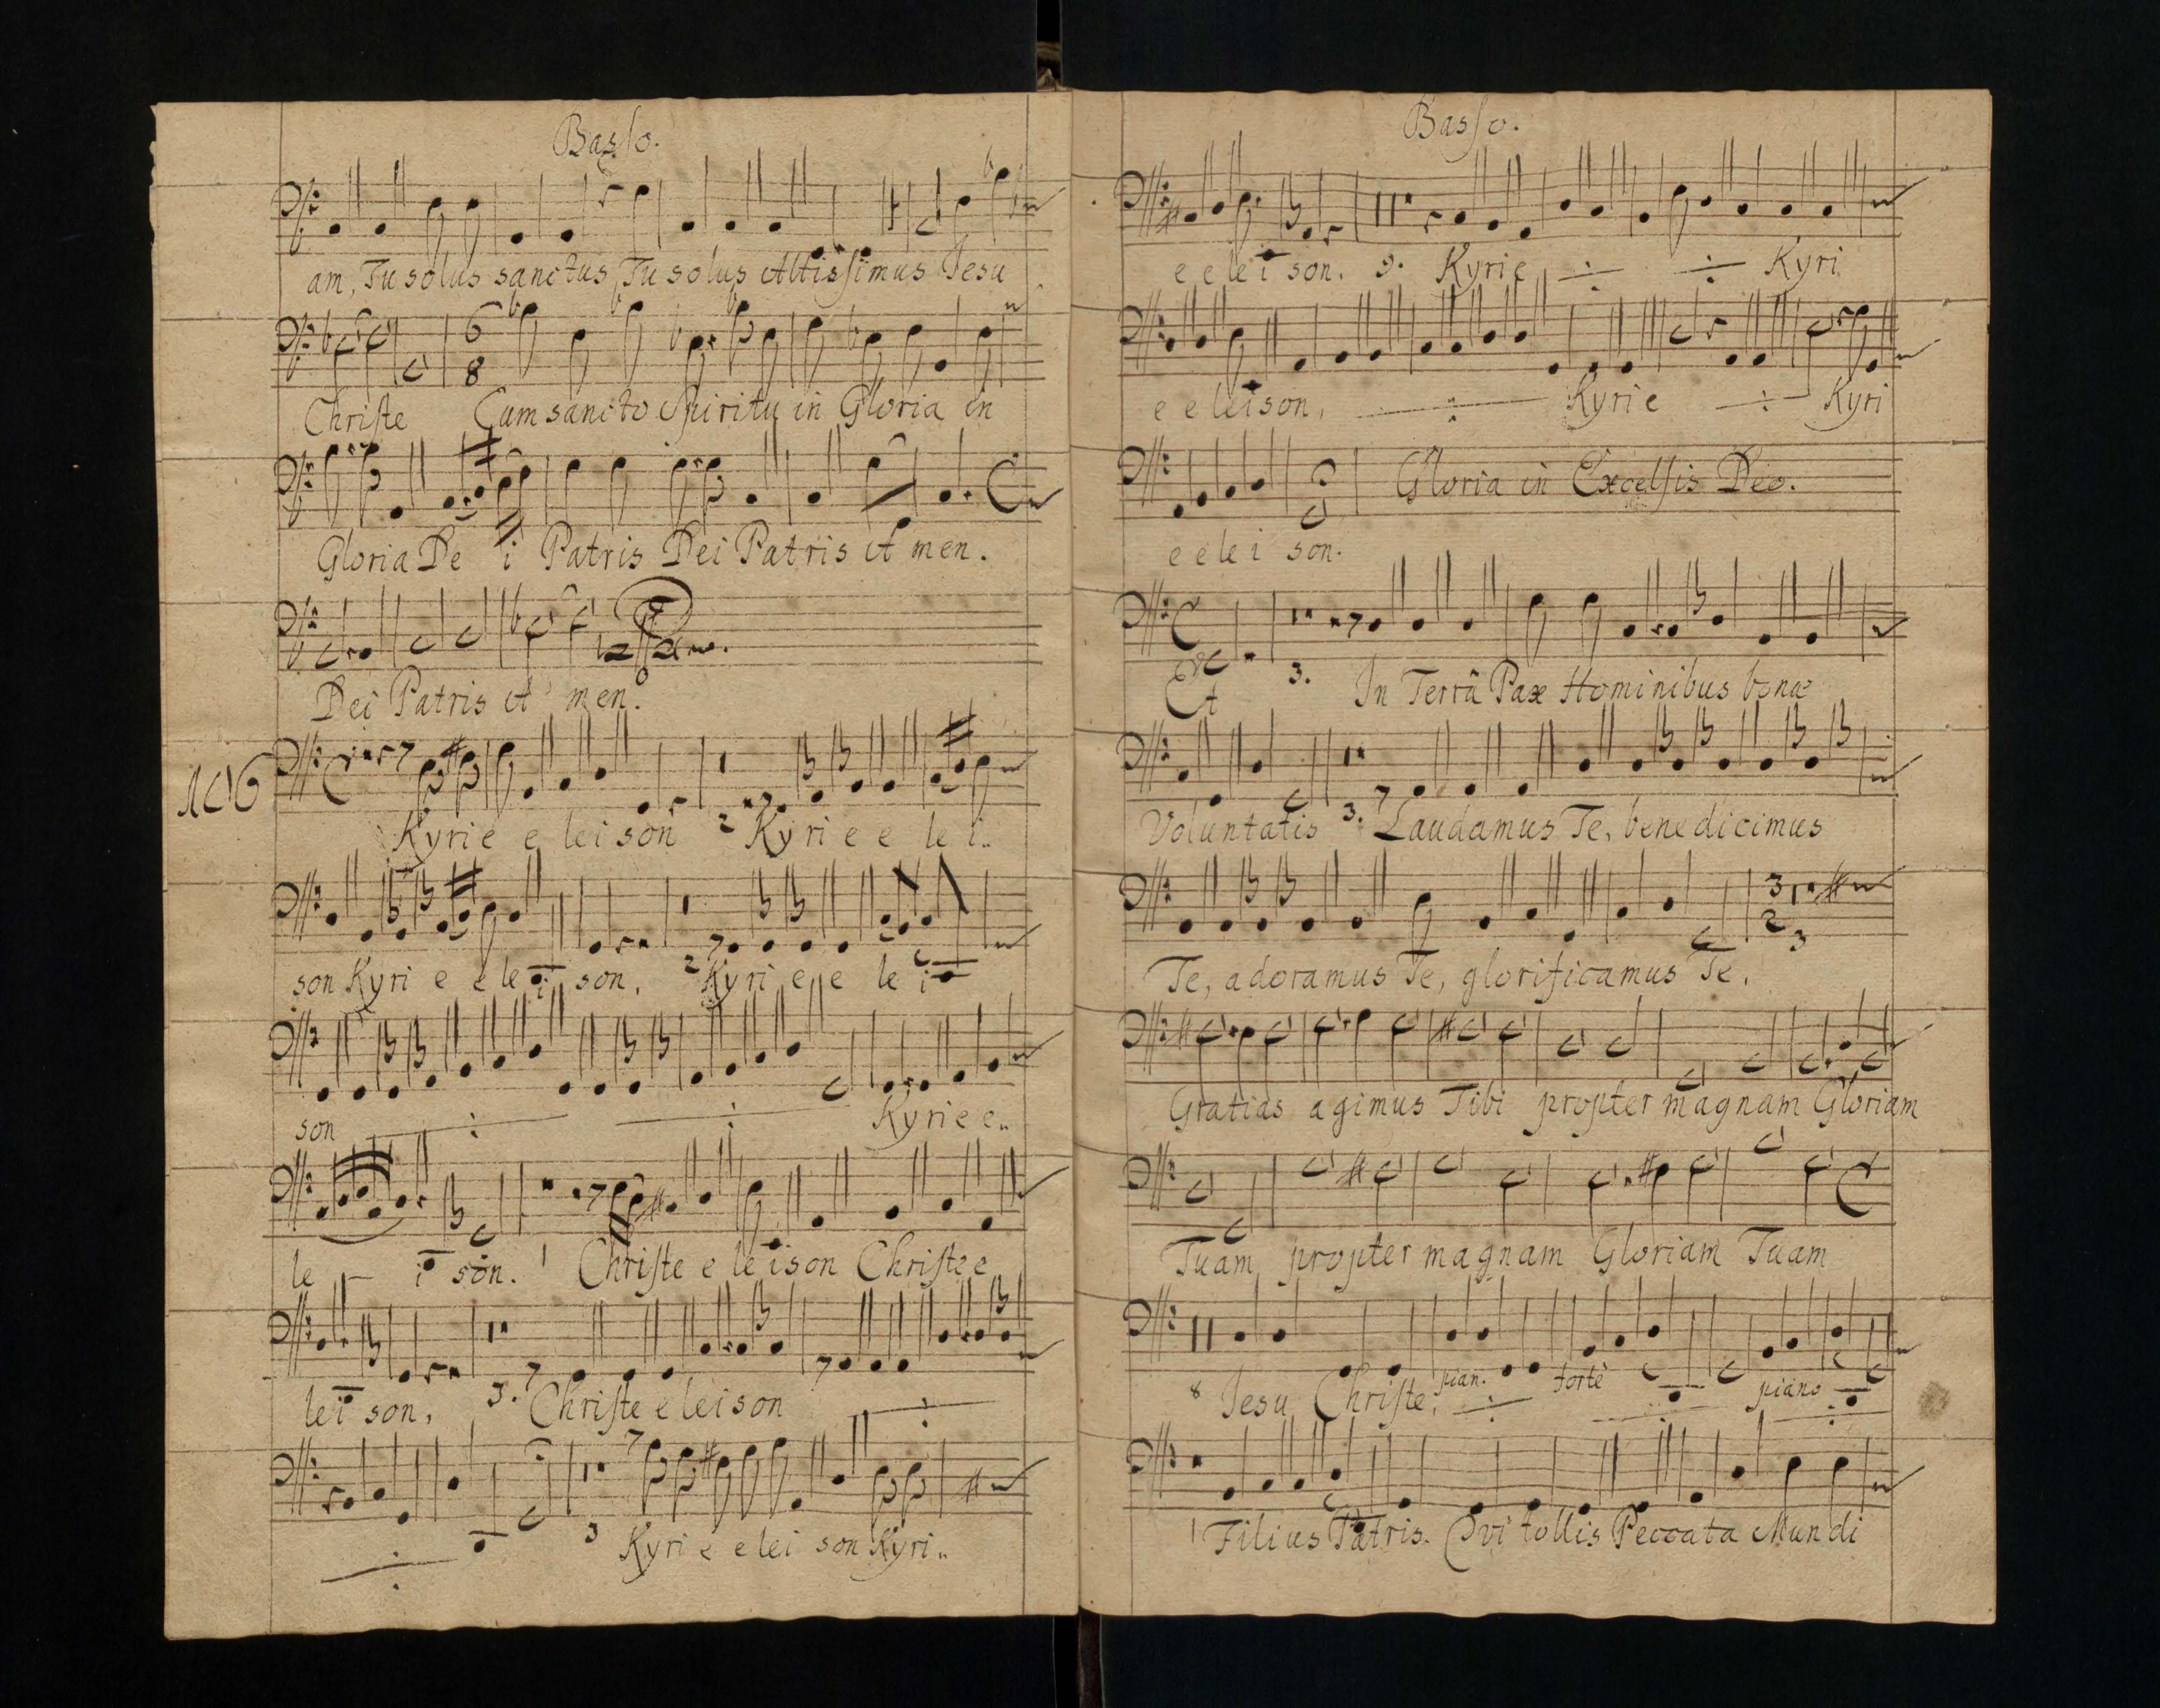 Basso.
am, Tu solus sanctus Tu solus Altissimus Jesu
6
8
Christe Cum sancto Spiritu in Gloria in
Gloria De i Patris Dei Patris A men.
Dei Patris A men.
106
Kyrie e leison 2 Kyri e e le i..
son Kyri e e le i son, 2 Kyri e e le i
son Kyrie e..
le i son. 1 Christe e leison Christe e
lei son, 3. Christe eleison
3 Kyri e e lei son Kyri..
Basso.
e e le i son. 9. Kyrie Kyri
e e leison, Kyrie Kyri
Gloria in Excelsis Deo.
e e le i son.
Et 3. In Terrâ Pax Hominibus bonæ
Voluntatis 3. Laudamus Te, benedicimus
3
2 3
Te, adoramus Te, glorificamus Te.
Gratias agimus Tibi propter magnam Gloriam
Tuam propter magnam Gloriam Tuam
8 Jesu Christe, pian. fortè piano
1 Filius Patris. Qvi tollis Peccata Mundi